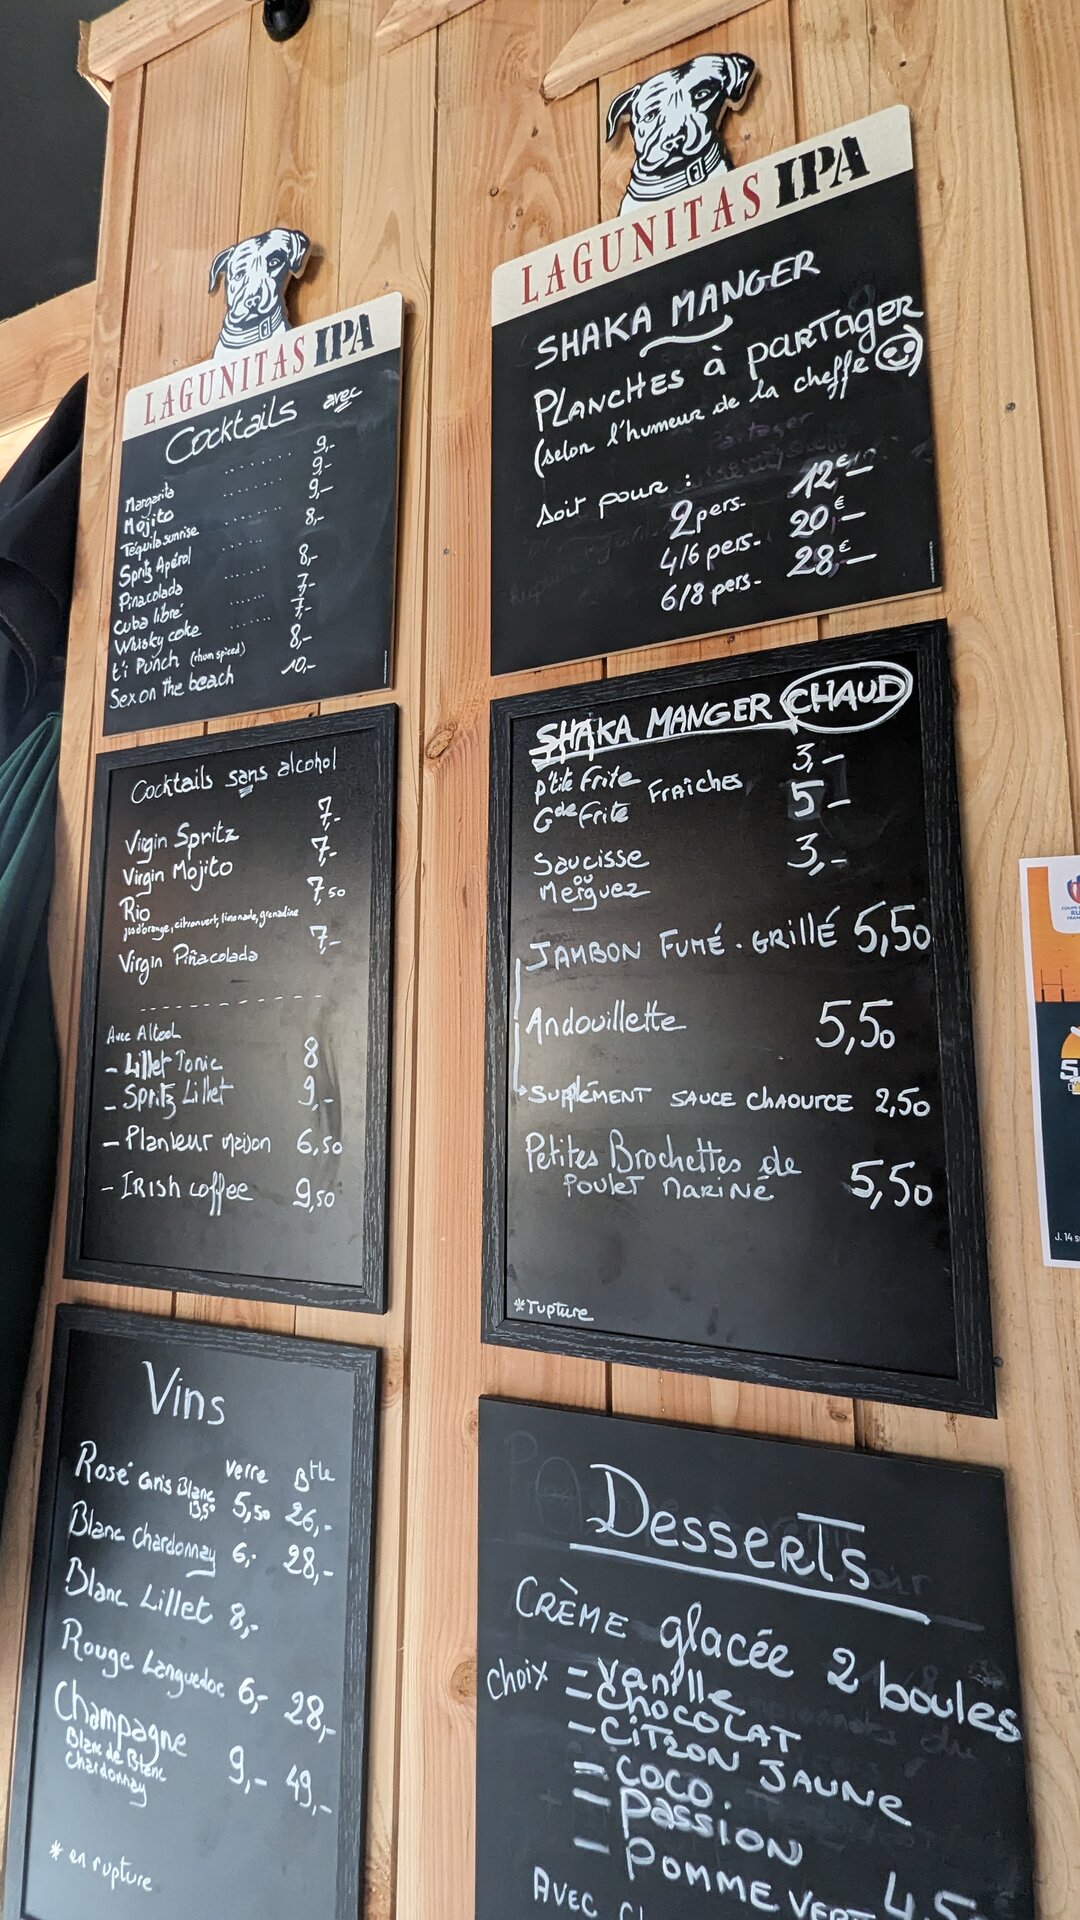 LAGUNITAS IPA
Cocktails avec
Margarita ........ 9,-
Mojito 9,-
Téquila sunrise ........ 9,-
Spritz Apérol ........ 8,-
Pinacolada ...... 8,-
Cuba libre' ...... 7,-
Whisky coke ...... 7,-
t'i Punch (rhum spiced) 8,-
Sex on the beach 10,-
Cocktails sans alcohol
Virgin Spritz 7,-
Virgin Mojito 7,-
Rio 7,50
jus d'orange, citron vert, limonade, grenadine
Virgin Piñacolada 7,-
Avec Alcool
- Lillet Tonic 8
- Spritz Lillet 9,-
- Planteur maison 6,50
- IRish coffee 9,50
Vins
Verre Btle
Rosé Gris Blanc 5,50 26,-
Blanc Chardonnay 6,- 28,-
Blanc Lillet 8,-
Rouge Languedoc 6,- 28,-
Champagne 9,- 49,-
Blanc de Blanc
Chardonnay
* en rupture
LAGUNITAS IPA
SHAKA MANGER
PLANCHES à partager
(selon l'humeur de la cheffe )
Soit pour :
2 pers- 12€-
4/6 pers- 20€-
6/8 pers- 28€-
SHAKA MANGER CHAUD
p'tite Frite 3,-
Gde Frite FRAICHES 5-
Saucisse 3,-
ou
Merguez
JAMBON FUMÉ . GRILLÉ 5,50
Andouillette 5,50
SUPPLÉMENT SAUCE CHAOURCE 2,50
Petites Brochettes de
POULET MARINÉ 5,50
*rupture
Desserts
CRÈME glacée 2 boules
choix - Vanille
- CHOCOLAT
- CITRON JAUNE
- COCO.
- PASSION
- POMME
AVEC
COUPE